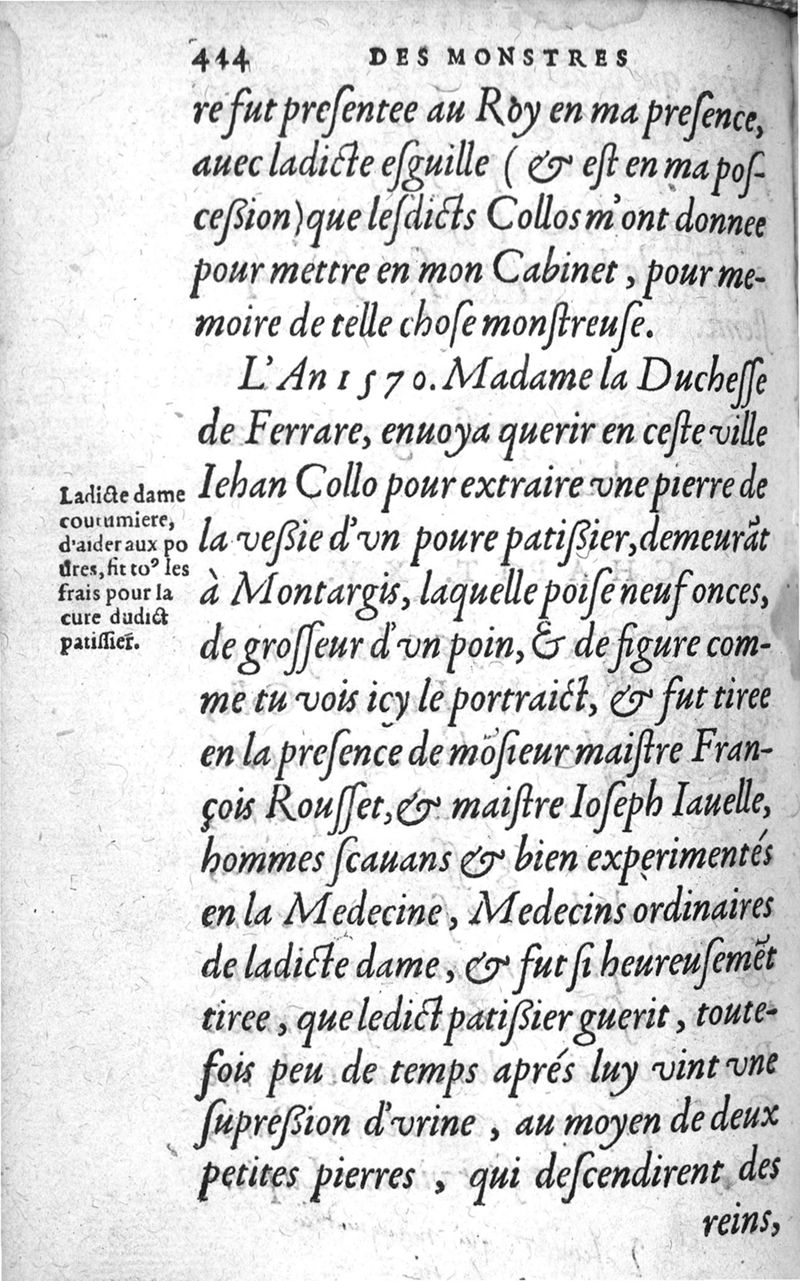 444 DES MONSTRES
re fut preſentee au Roy en ma preſence,
auec ladicte eſguille ( & eſt en ma poſ-
ceßion) que leſdicts Collos m'ont donnee
pour mettre en mon Cabinet, pour me-
moire de telle choſe monſtreuſe.
L'An 1570. Madame la Ducheſſe
de Ferrare, enuoya querir en ceſte ville
Iehan Collo pour extraire vne pierre de
la veßie d'vn poure patißier, demeurãt
à Montargis, laquelle poiſe neuf onces,
de groſſeur d'vn poin, & de figure com-
me tu vois icy le portraict, & fut tiree
en la preſence de mõſieur maiſtre Fran-
çois Rouſſet, & maiſtre Ioſeph Iauelle,
hommes ſcauans & bien experimentés
en la Medecine, Medecins ordinaires
de ladicte dame, & fut ſi heureuſemẽt
tiree, que ledict patißier guerit, toute-
fois peu de temps aprés luy vint vne
ſupreßion d'vrine, au moyen de deux
petites pierres, qui deſcendirent des
reins,
Ladicte dame
coutumiere,
d'aider aux po
ures, fit toꝰ les
frais pour la
cure dudict
patiſſier.